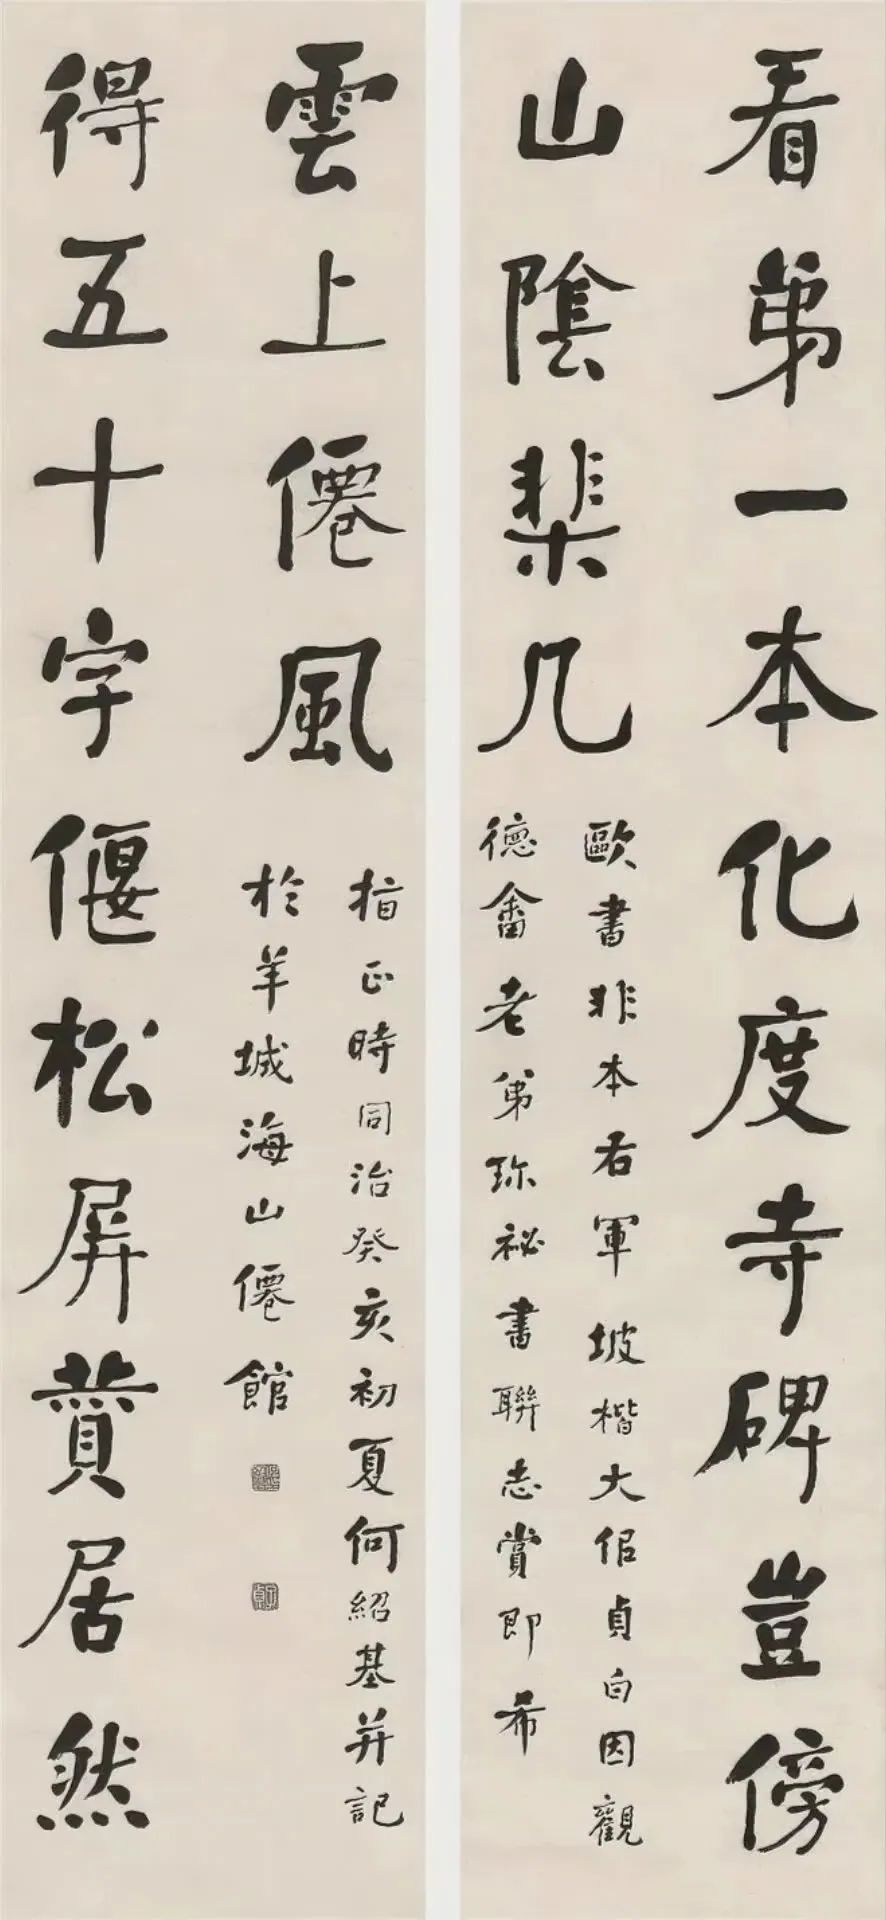 看弟一本化度寺碑豈傍
山陰棐几
歐書非本右軍坡楷大佀貞白因觀
德畬老弟珎祕書聯志賞即希
得五十字偃松屏贊居然
雲上僊風
指正時同治癸亥初夏何紹基并記
於羊城海山僊館
子貞